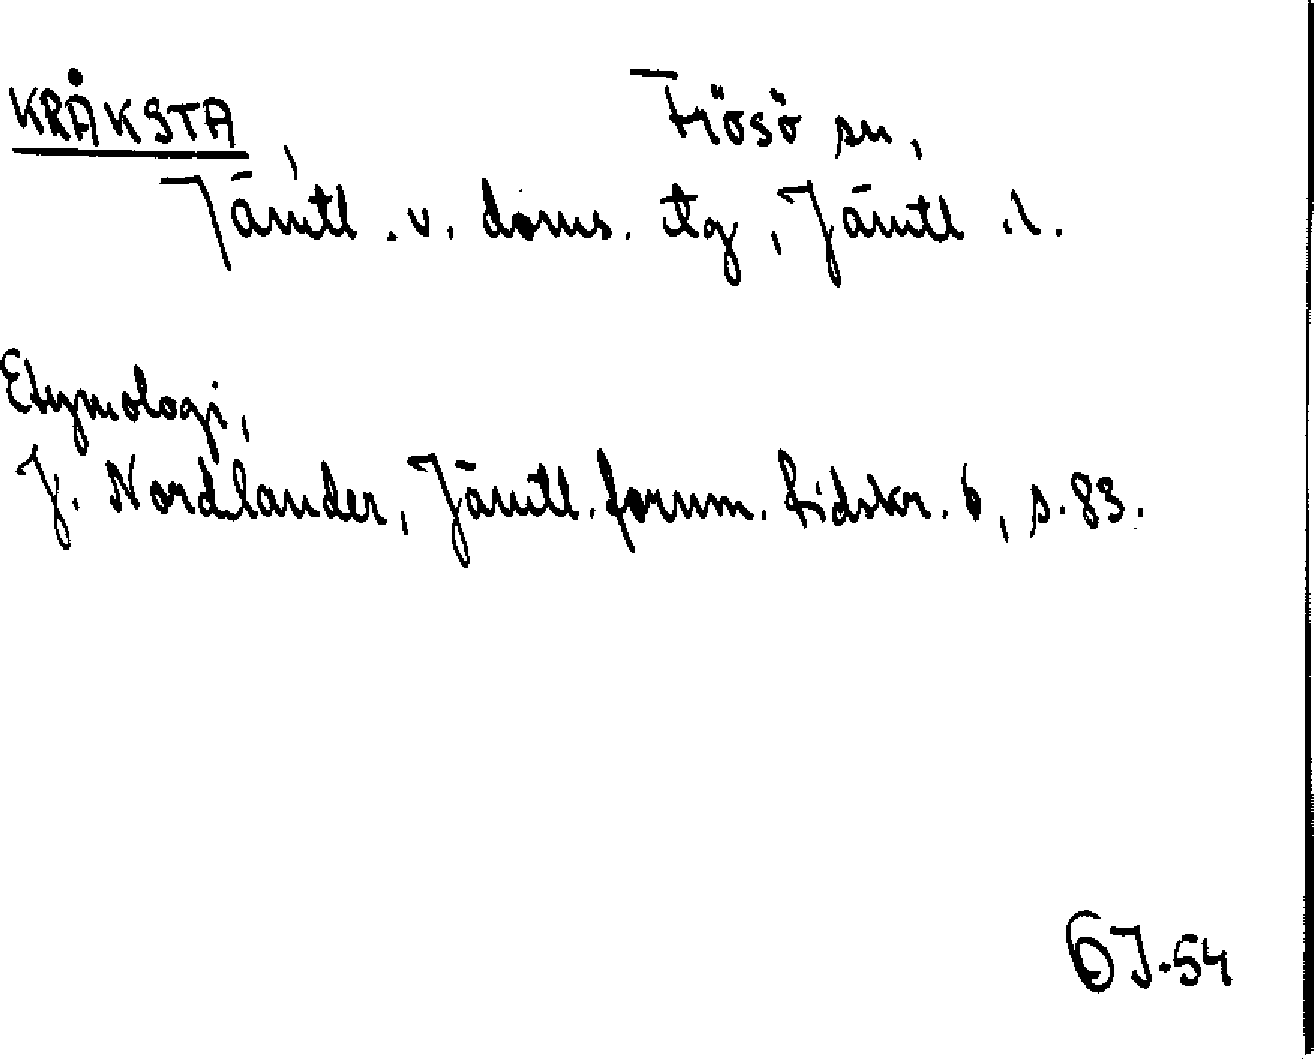 KRÅKSTA, Frösö sn,
Jämtl. v. doms. tg, Jämtl. l.
Etymologi,
J. Nordlander, Jämtl. fornm. tidskr. 6, s. 83.
GJ. 54